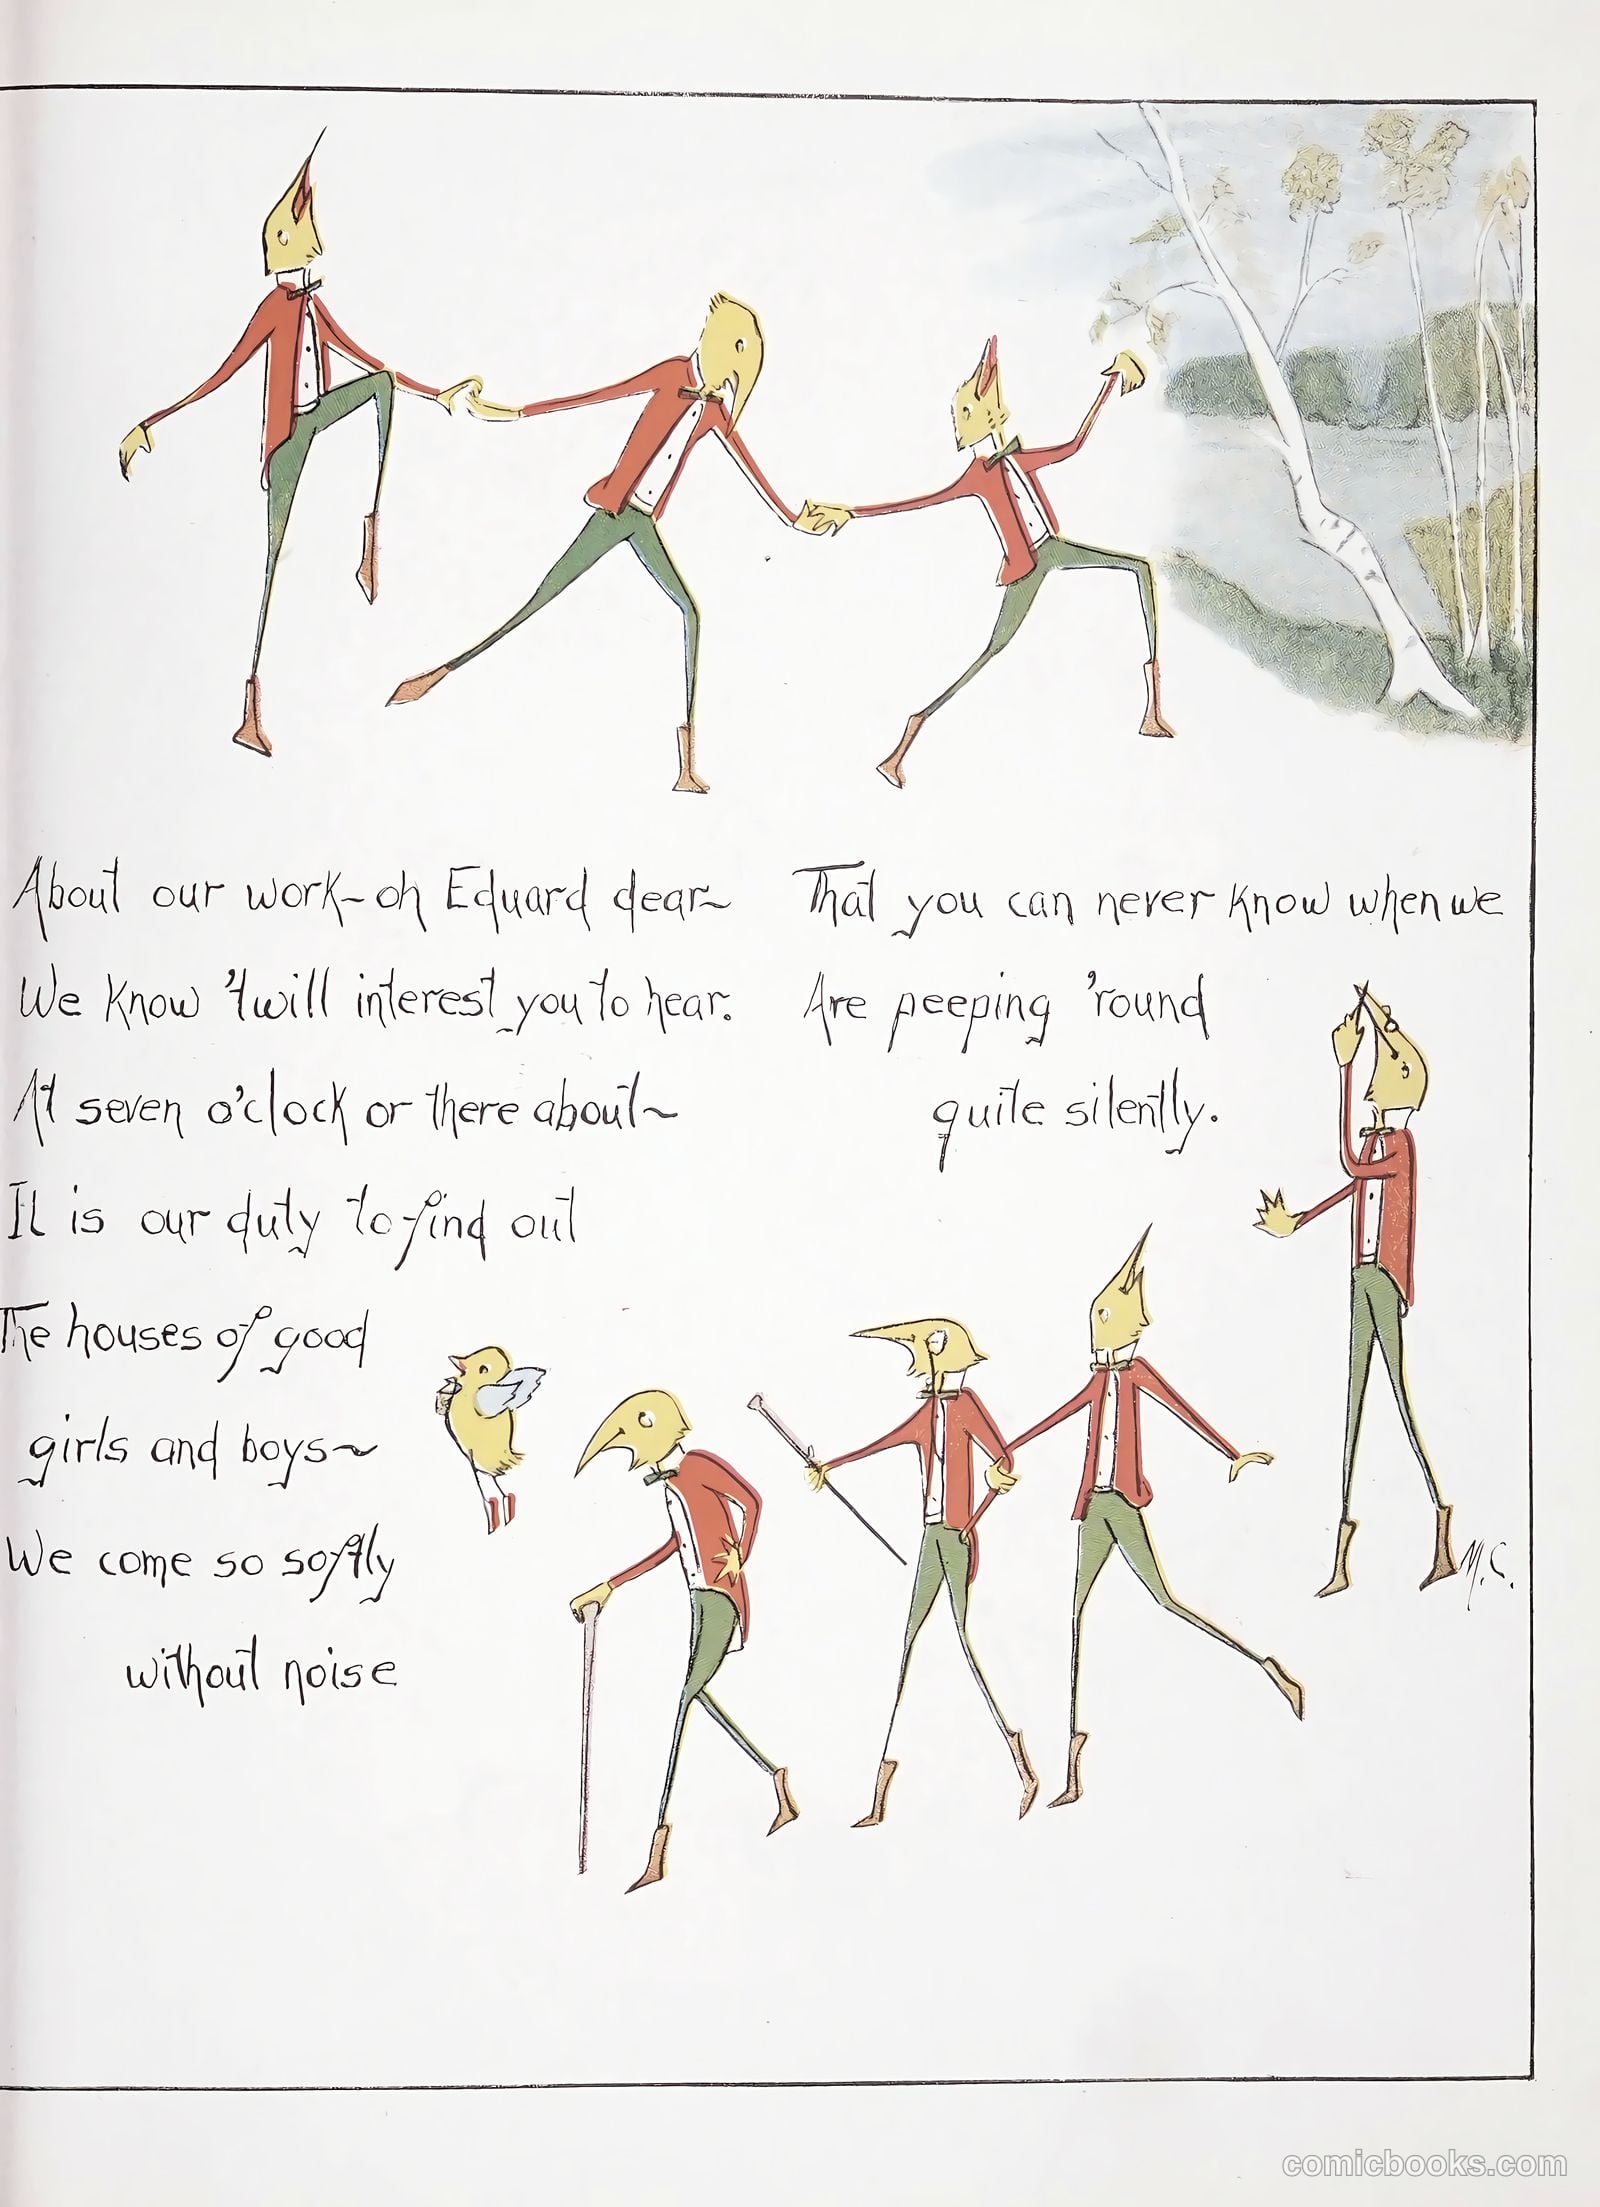 About our work~oh Eduard dear~
We know 'twill interest you to hear.
At seven o'clock or there about~
It is our duty to find out
The houses of good
girls and boys~
We come so softly
without noise
That you can never know when we
Are peeping 'round
quite silently.
M.C.
comicbooks.com